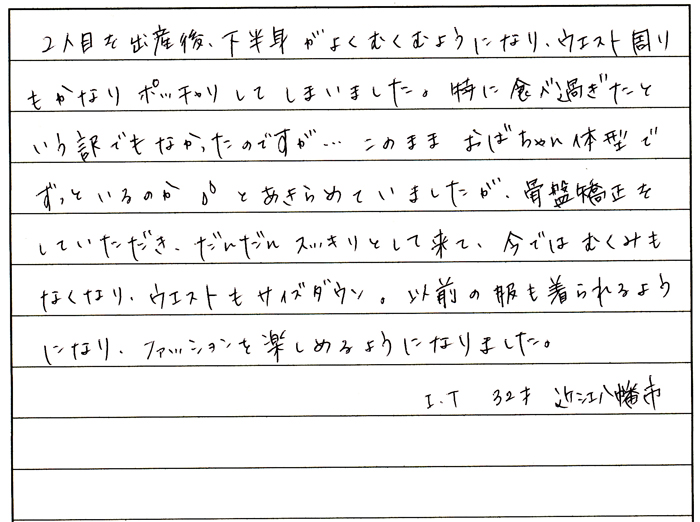 2人目を出産後、下半身がよくむくむようになり、ウエスト周り
もかなりポッチャリしてしまいました。特に食べ過ぎたと
いう訳でもなかったのですが… このまま おばちゃん体型で
ずっといるのか とあきらめていましたが、骨盤矯正を
していただき、だんだんスッキリとして来て、今ではむくみも
なくなり、ウエストもサイズダウン。以前の服も着られるよう
になり、ファッションを楽しめるようになりました。
I.T 32才 近江八幡市